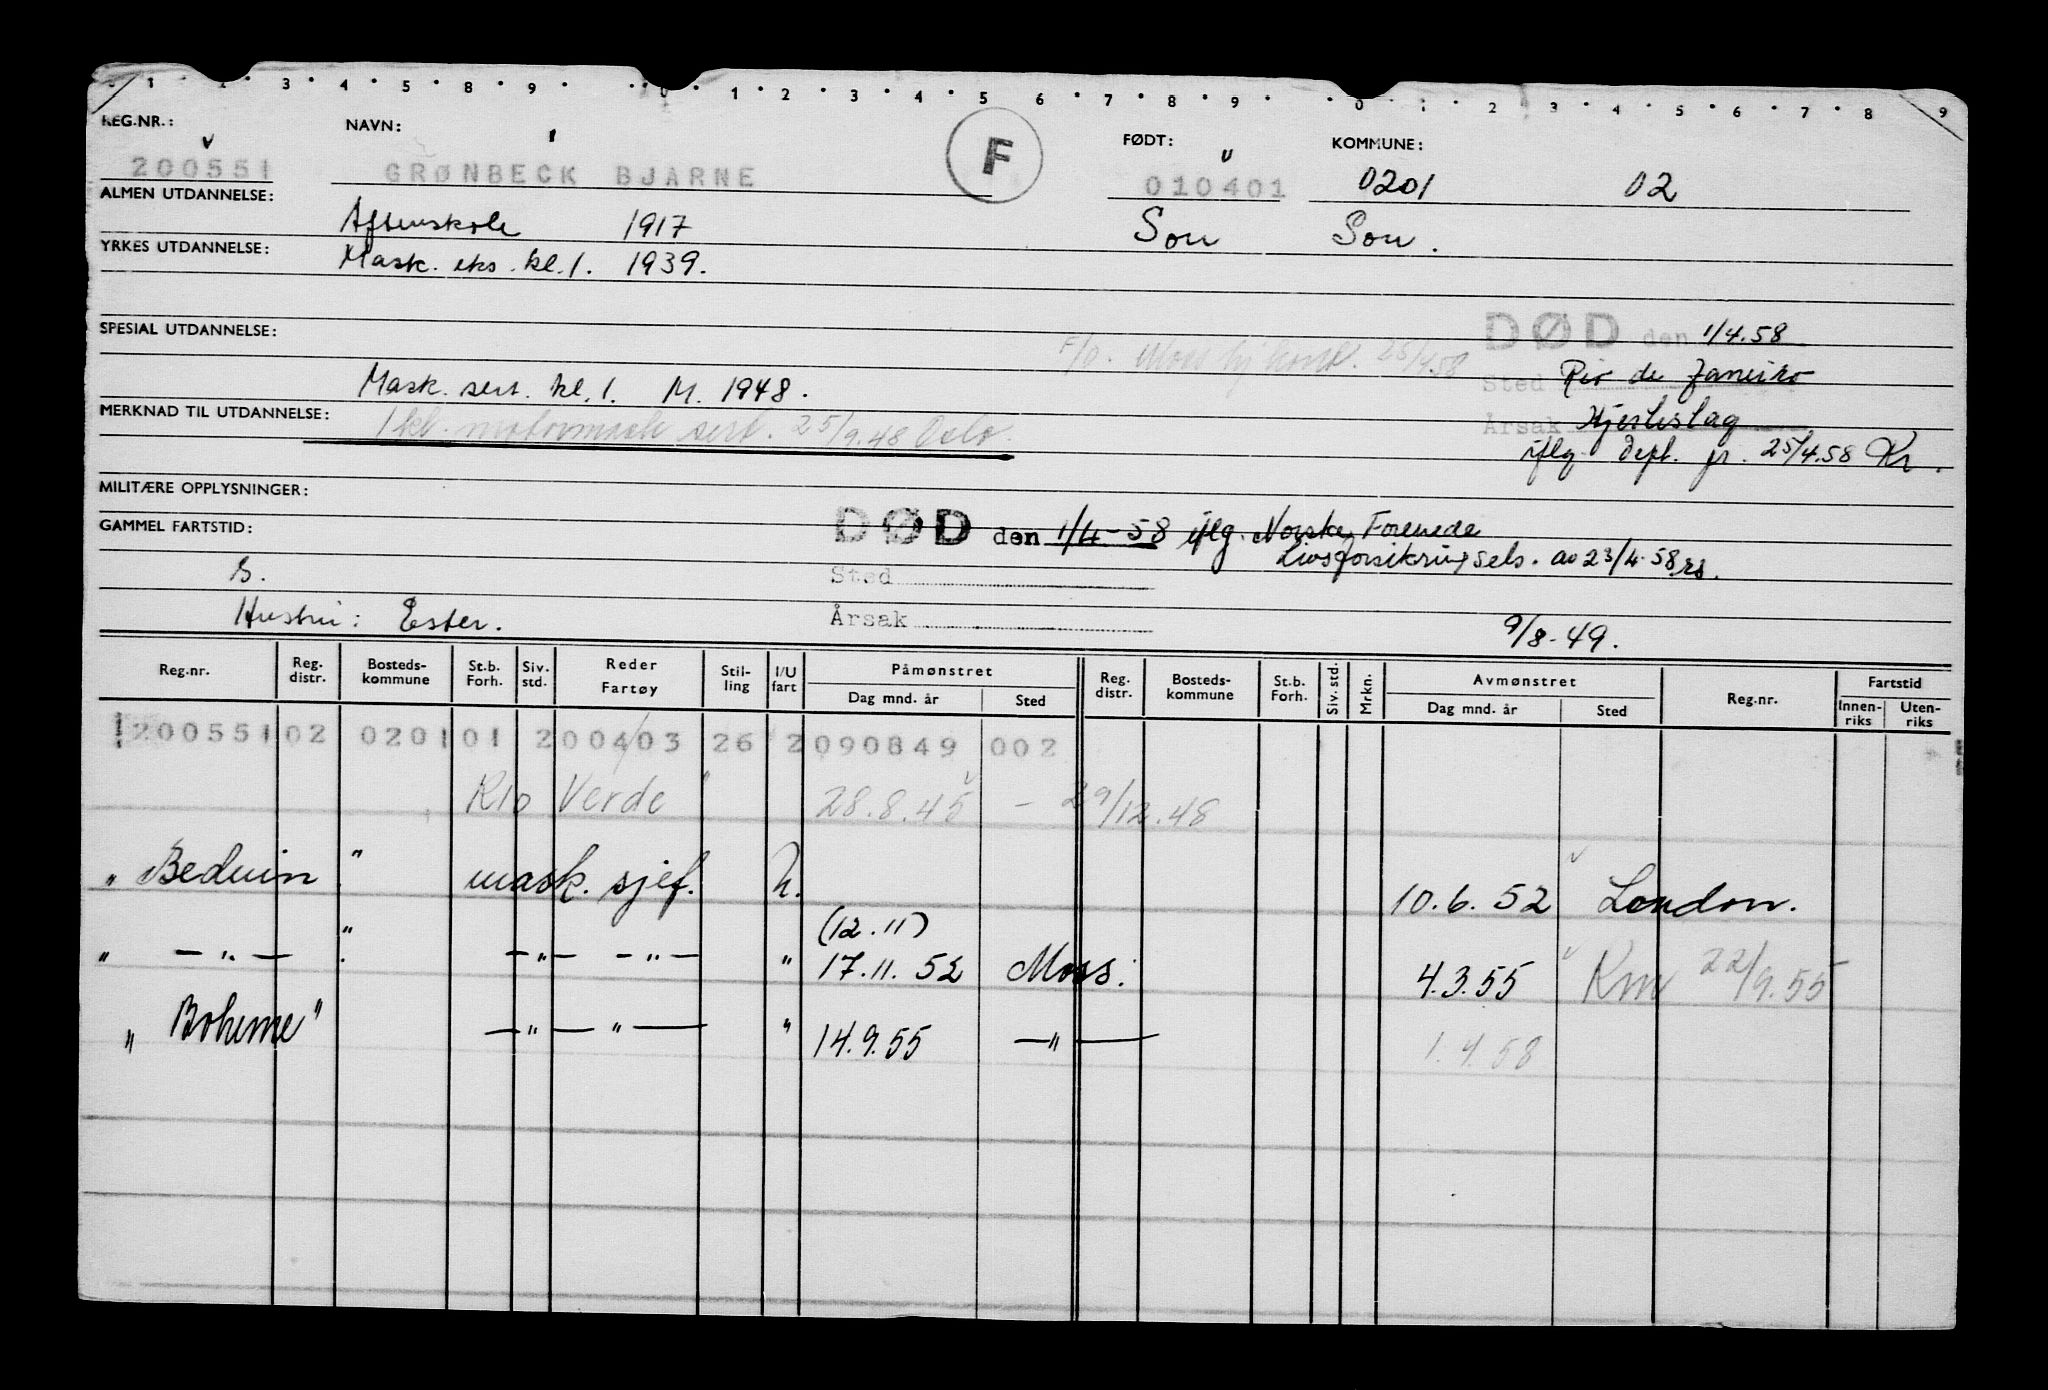 1 2 3 4 5 8 9 0 1 2 3 4 5 6 7 8 9 0 1 2 3 4 5 6 7 8 9
REG.NR.: NAVN: FØDT: KOMMUNE:
200551 GRØNBECK BJARNE F 010401 0201 02
ALMEN UTDANNELSE: Aftenskole 1917 Son Son.
YRKES UTDANNELSE: Mask. eks. kl. 1. 1939.
SPESIAL UTDANNELSE: DØD den 1/4.58
F/O. Moss 25/4.58
Sted Rio de Janeiro
Mask. sert. kl. 1. M. 1948.
MERKNAD TIL UTDANNELSE: Årsak Hjerteslag
1 kl. motormask sert. 25/9.48 Oslo.
iflg. Dept. jr. 25/4.58 Kr.
MILITÆRE OPPLYSNINGER:
GAMMEL FARTSTID: DØD den 1/4-58 iflg. Norske Forenede
Livsforsikringsels. av 23/4-58 rs.
G. Sted
Hustru: Ester. Årsak 9/8-49.
Reg.nr. Reg. distr. Bosteds-kommune St.b. Forh. Siv. std. Reder Fartøy Stil-ling I/U fart Påmønstret Dag mnd. år Sted Reg. distr. Bosteds-kommune St.b. Forh. Siv. std. Mrkn. Avmønstret Dag mnd. år Sted Reg.nr. Fartstid Innen-riks Uten-riks
200551 02 0201 01 2 00403 26 2 090849 002
Rio Verde 28.8.45 - 29/12.48
" Beduin " mask. sjef. U. 10.6.52 London.
(12.11)
" - " - " - " - - " - " 17.11.52 Moss. 4.3.55 Km 22/9.55
" Boheme " - " - " - " 14.9.55 - " - 1.4.58